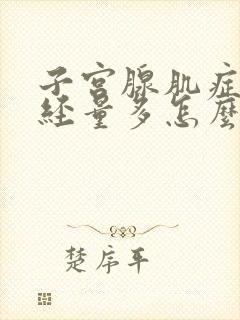 子宫腺肌症
经量多怎麽
楚序平